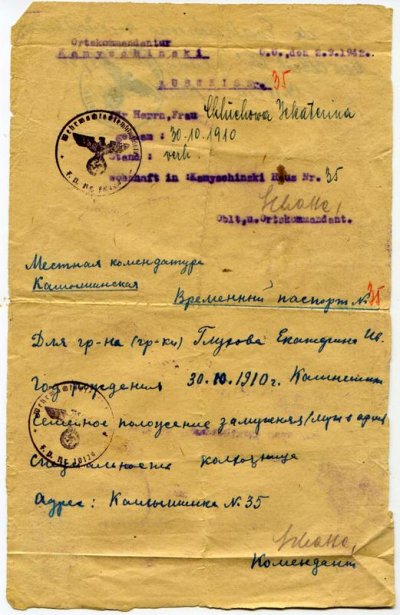 Ortskommandantur
Kamyschinski O.U., den 2.9.1942.
AUSWEIS Nr. 35
Herrn, Frau Chluchowa Ekaterina
30.10.1910
Stand : verh.
wohnhaft in : Kamyschinski Haus Nr. 35
Oblt, u. Ortskommandant.
Местная комендатура
Камышинская
Временный паспорт № 35
Для гр-на (гр-ки) Глухова Екатерина
Год рождения 30.10.1910 г.
Семейное положение замужняя / муж в арм
Специальность колхозница
Адрес: Камышинка № 35
Комендант